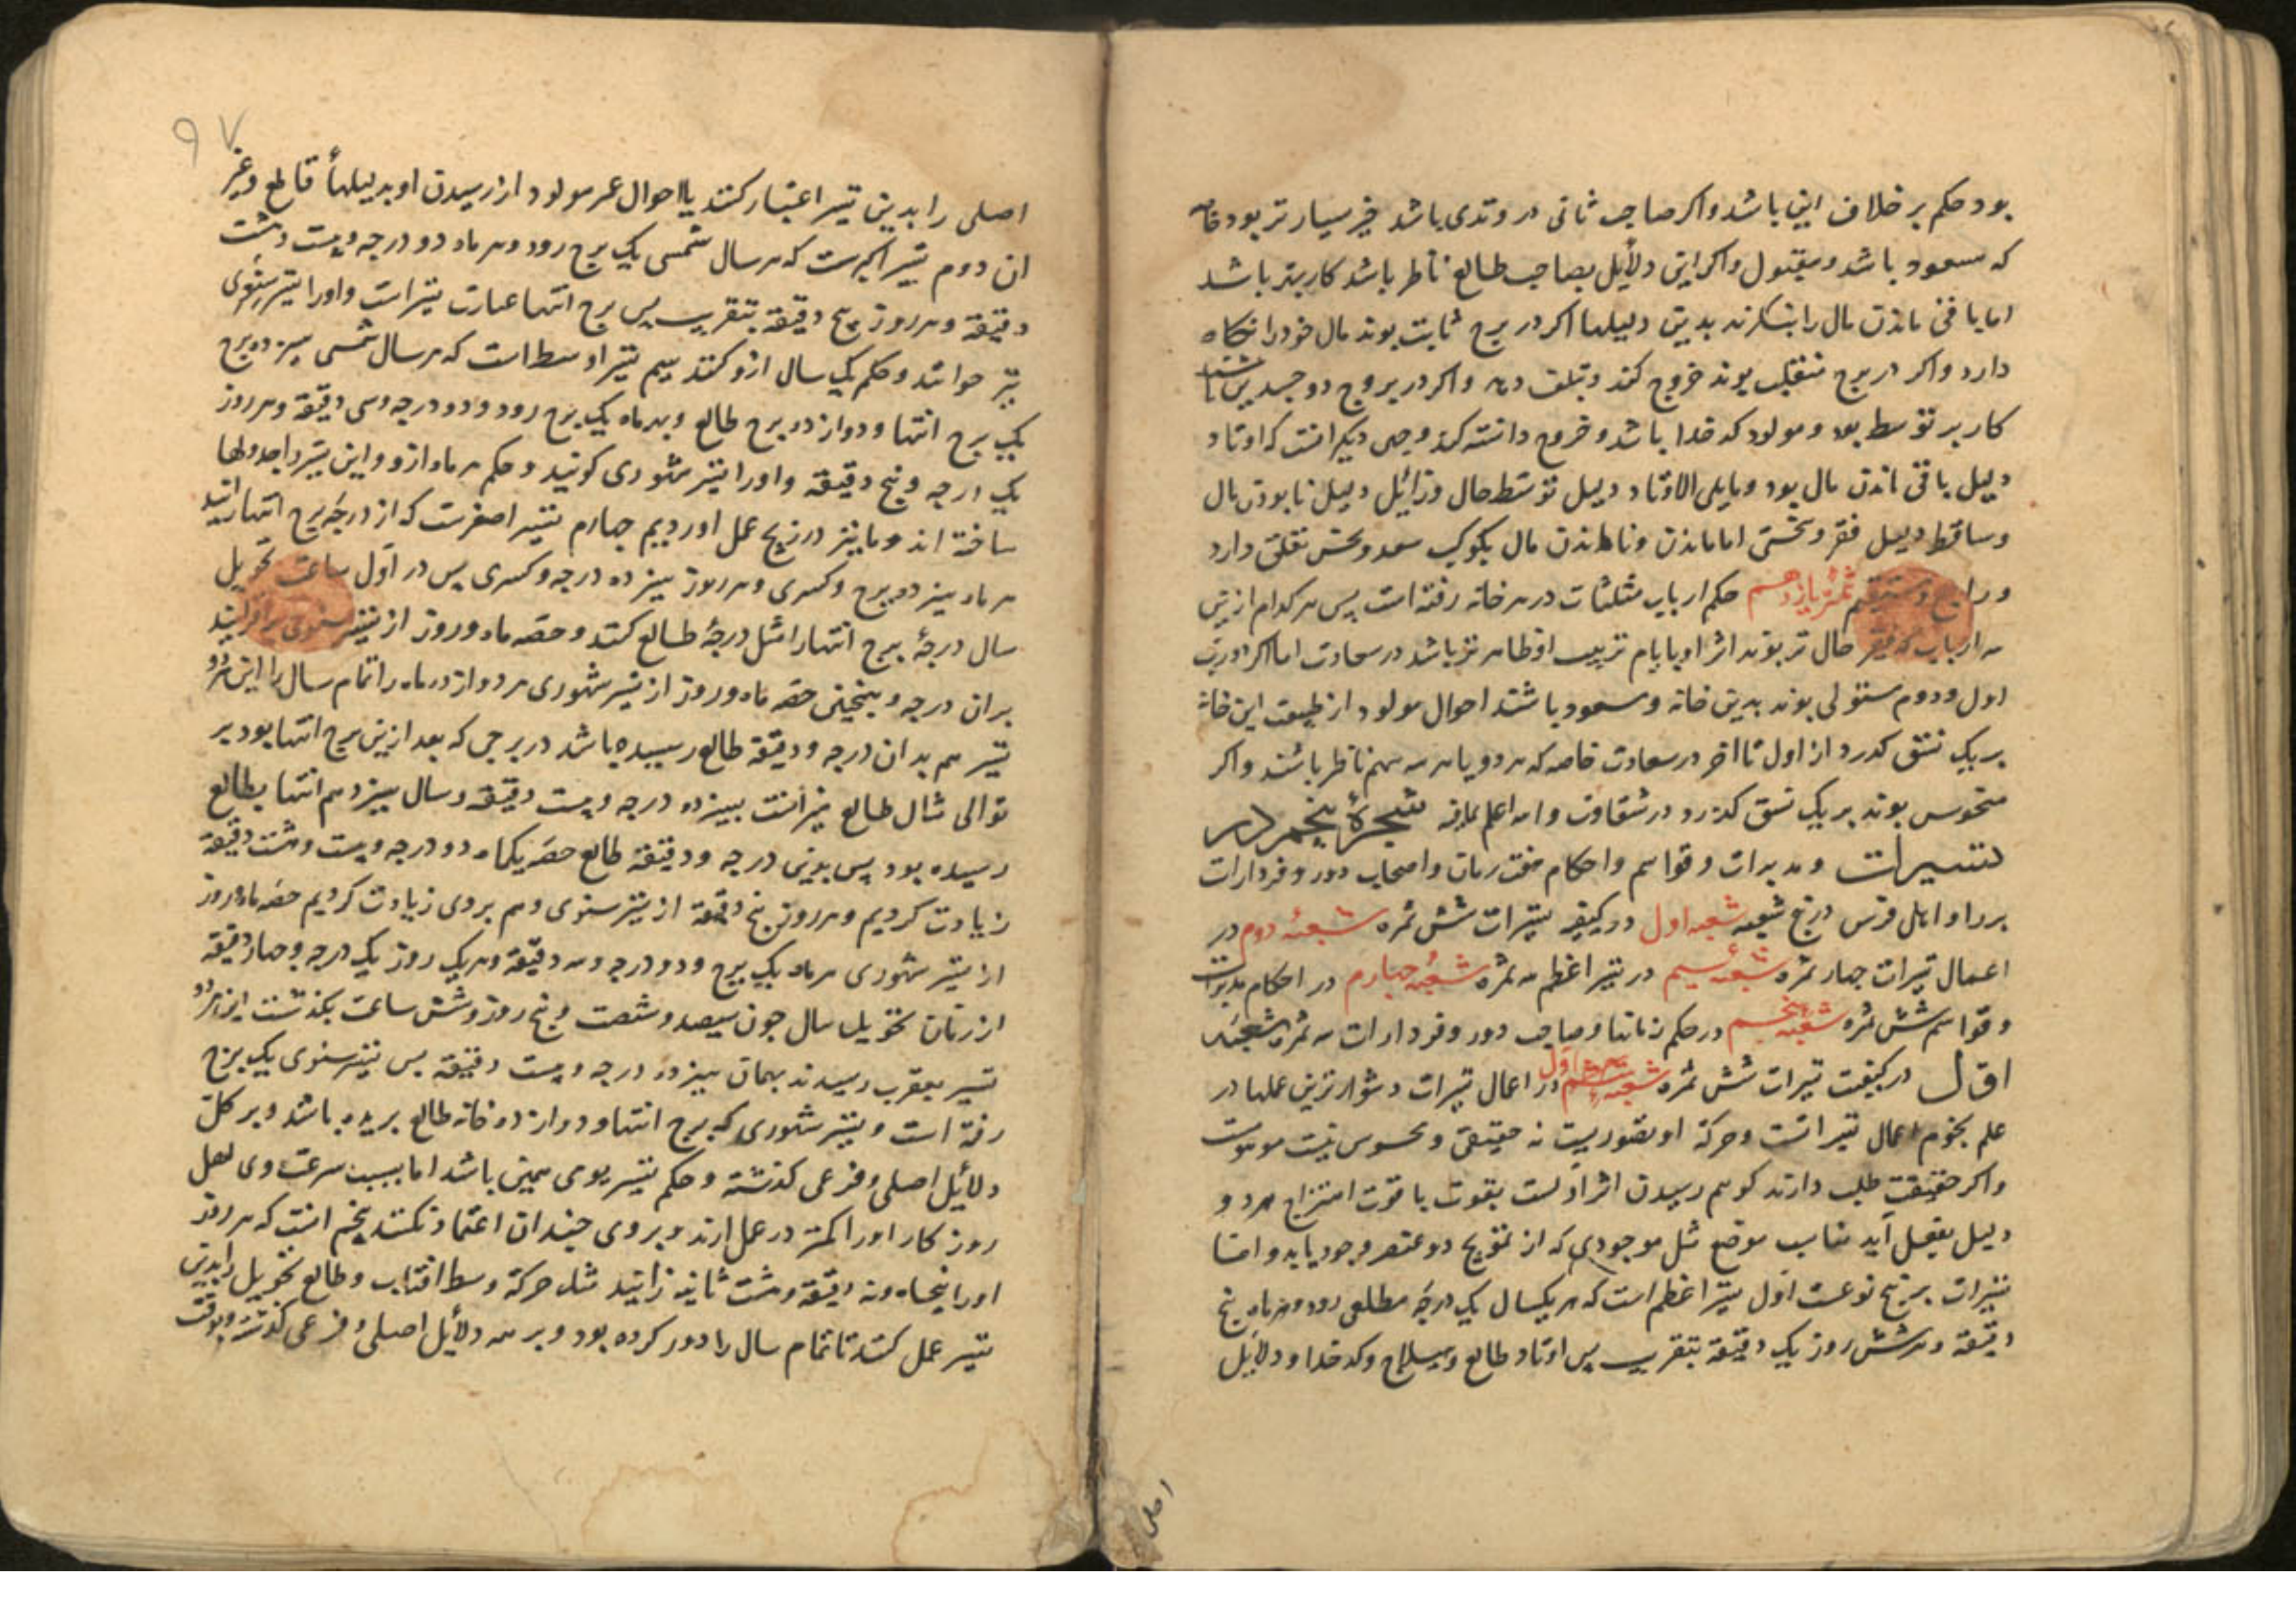 بود حکم بر خلاف این باشد واکر صاحب ثانی در وتدی باشد خیر بسیار تر بود خاصه
که مسعود باشد ومقبول واکر این دلأیل بصاحب طالع ناظر باشد کار بهتر باشد
اما باقی ماندن مال را بنکرند بدین دلیلها اکر در برج ثابت بوند مال خود را نکاه
دارد واکر در برج منقلب بوند خروج کند وتلف دهد واکر در بروج دو جسدین باشند
کار بر توسط بود ومولود کدخدا باشد وخروج دانسته کند وجهی دیکر انست که اوتاد
دلیل باقی ماندن مال بود ومایلی الاوتاد دلیل توسط حال وزائیل دلیل نابودن مال
وساقط دلیل فقر وسختی اما ماندن ونا ماندن مال بکوکب سعد ونحس تعلق دارد
وراجع ومستقیم ثمره یازدهم حکم ارباب مثلثات در هر خانه رفته است پس هر کدام ازین
سه ارباب که قوی حال تر بوند اثر او بایام تربیت او ظاهر تر باشد در سعادت اما اکر ارباب
اول ودوم مستولی بوند بدین خانه ومسعود باشند احوال مولود از طبیعت این خانه
بر یک نسق کذرد از اول تا اخر در سعادت خاصه که هر دو یا هر سه بهم ناظر باشند واکر
منحوس بوند بر یک نسق کذرد در شقاوت والله اعلم شجرهٔ پنجم در
تسییرات ومدبرات وقواسم واحکام هفت زمان واصحاب دور وفردارات
برراواملی فرس در پنج شعبه شعبه اول در کیفیه تسییرات شش ثمره شعبهٔ دوم در
اعمال تسیرات چهار ثمره شعبهٔ سیم در تسیر اعظم سه ثمره شعبهٔ چهارم در احکام مدبرات
وقواسم شش ثمره شعبه پنجم در حکم زمانها وصاحب دور وفردارات سه ثمره شعبه
اول در کیفیت تسیرات شش ثمره اول در اعمال تسیرات دشوارترین عملها در
علم نجوم اعمال تسیر است وحرکة او تصوریست نه حقیقی ومحسوس نیست موهومست
واکر حقیقت طلب دارند کوییم رسیدن اثر اولست بقوت یا قوت امتزاج هر دو
دلیل بفعل آید مناسب موضع مثل موجودی که از تزویج دو عنصر وجود یابد واقسام
تسیرات بر پنج نوعست اول تسیر اعظم است که هر یکسال یک درجهٔ مطلعی رود وهر ماه پنج
دقیقة وهر شش روز یک دقیقة بتقریب پس اوتاد طالع وهیلاج وکدخدا ودلایل
اصلی
۹۷
اصلی را بدین تسیر اعتبار کنند یا احوال عمر مولود از رسیدن او بدلیلهأ قاطع وغیر
ان دوم تسیر اکبرست که هر سال شمسی یک برج رود وهر ماه دو درجه وبیست وهشت
دقیقة وهر روز پنج دقیقة بتقریب پس برج انتها عبارت تسیر است واورا تسیر سنوی
نیز خوانند وحکم یک سال ازو کنند سیم تسیر اوسط است که هر سال شمسی سیزده برج
یک برج انتها ودوازده برج طالع وبهر ماه یک برج رود ودو درجه وسی دقیقة وهر روز
یک درجه وپنج دقیقة واورا تسیر شهوری کویند وحکم هر ماه ازو واین تسیر را جدولها
ساخته اند وما نیز در زیج عمل اوردیم چهارم تسیر اصغرست که از درجهٔ برج انتها رانند
هر ماه سیزده برج وکسری وهر روز سیزده درجه وکسری پس در اول ساعت تحویل
سال درجهٔ برج انتها را مثل درجهٔ طالع کنند وحصه ماه وروز از تسیر سنوی بر افزایند
بران درجه وبنجنین حصه ماه وروز از تسیر شهوری هر دوازده ماه را تمام سال را این هر دو
تسیر هم بدان درجه ودقیقة طالع رسیده باشد در برجی که بعد ازین برج انتها بود بر
توالی مثال طالع میزانست بسیزده درجه وبیست دقیقه وسال سیزدهم انتها بطالع
رسیده بود پس بدین درجه ودقیقة طالع حصه یکماه دو درجه وبیست وهشت دقیقة
زیادت کردیم وهر روز پنج دقیقة از تسیر سنوی وهم بروی زیادت کردیم حصه ماه وروز
از تسیر شهوری هر ماه یک برج ودو درجه وسه دقیقة وهر یک روز یک درجه وچهار دقیقة
از زمان تحویل سال چون سیصد وشصت وپنج روز وشش ساعت بکذشت این هر دو
تسیر بعقرب رسیدند بهمان سیزده درجه وبیست دقیقة پس تسیر سنوی یک برج
رفته است وتسیر شهوری که برج انتها ودوازده خانه طالع بریده باشد وبر کل
دلأیل اصلی وفرعی کذشته وحکم تسیر یومی همین باشد اما بسبب سرعت وی اهل
روزکار اورا کمتر در عمل ارند وبروی چندان اعتماد نکنند پنجم انست که هر روز
اورا پنجاه ونه دقیقة وهشت ثانیه رانند مثل حرکة وسط افتاب وطالع تحویل را بدین
تسیر عمل کنند تا تمام سال را دور کرده بود وبر همه دلأیل اصلی وفرعی کذشته وبوقت